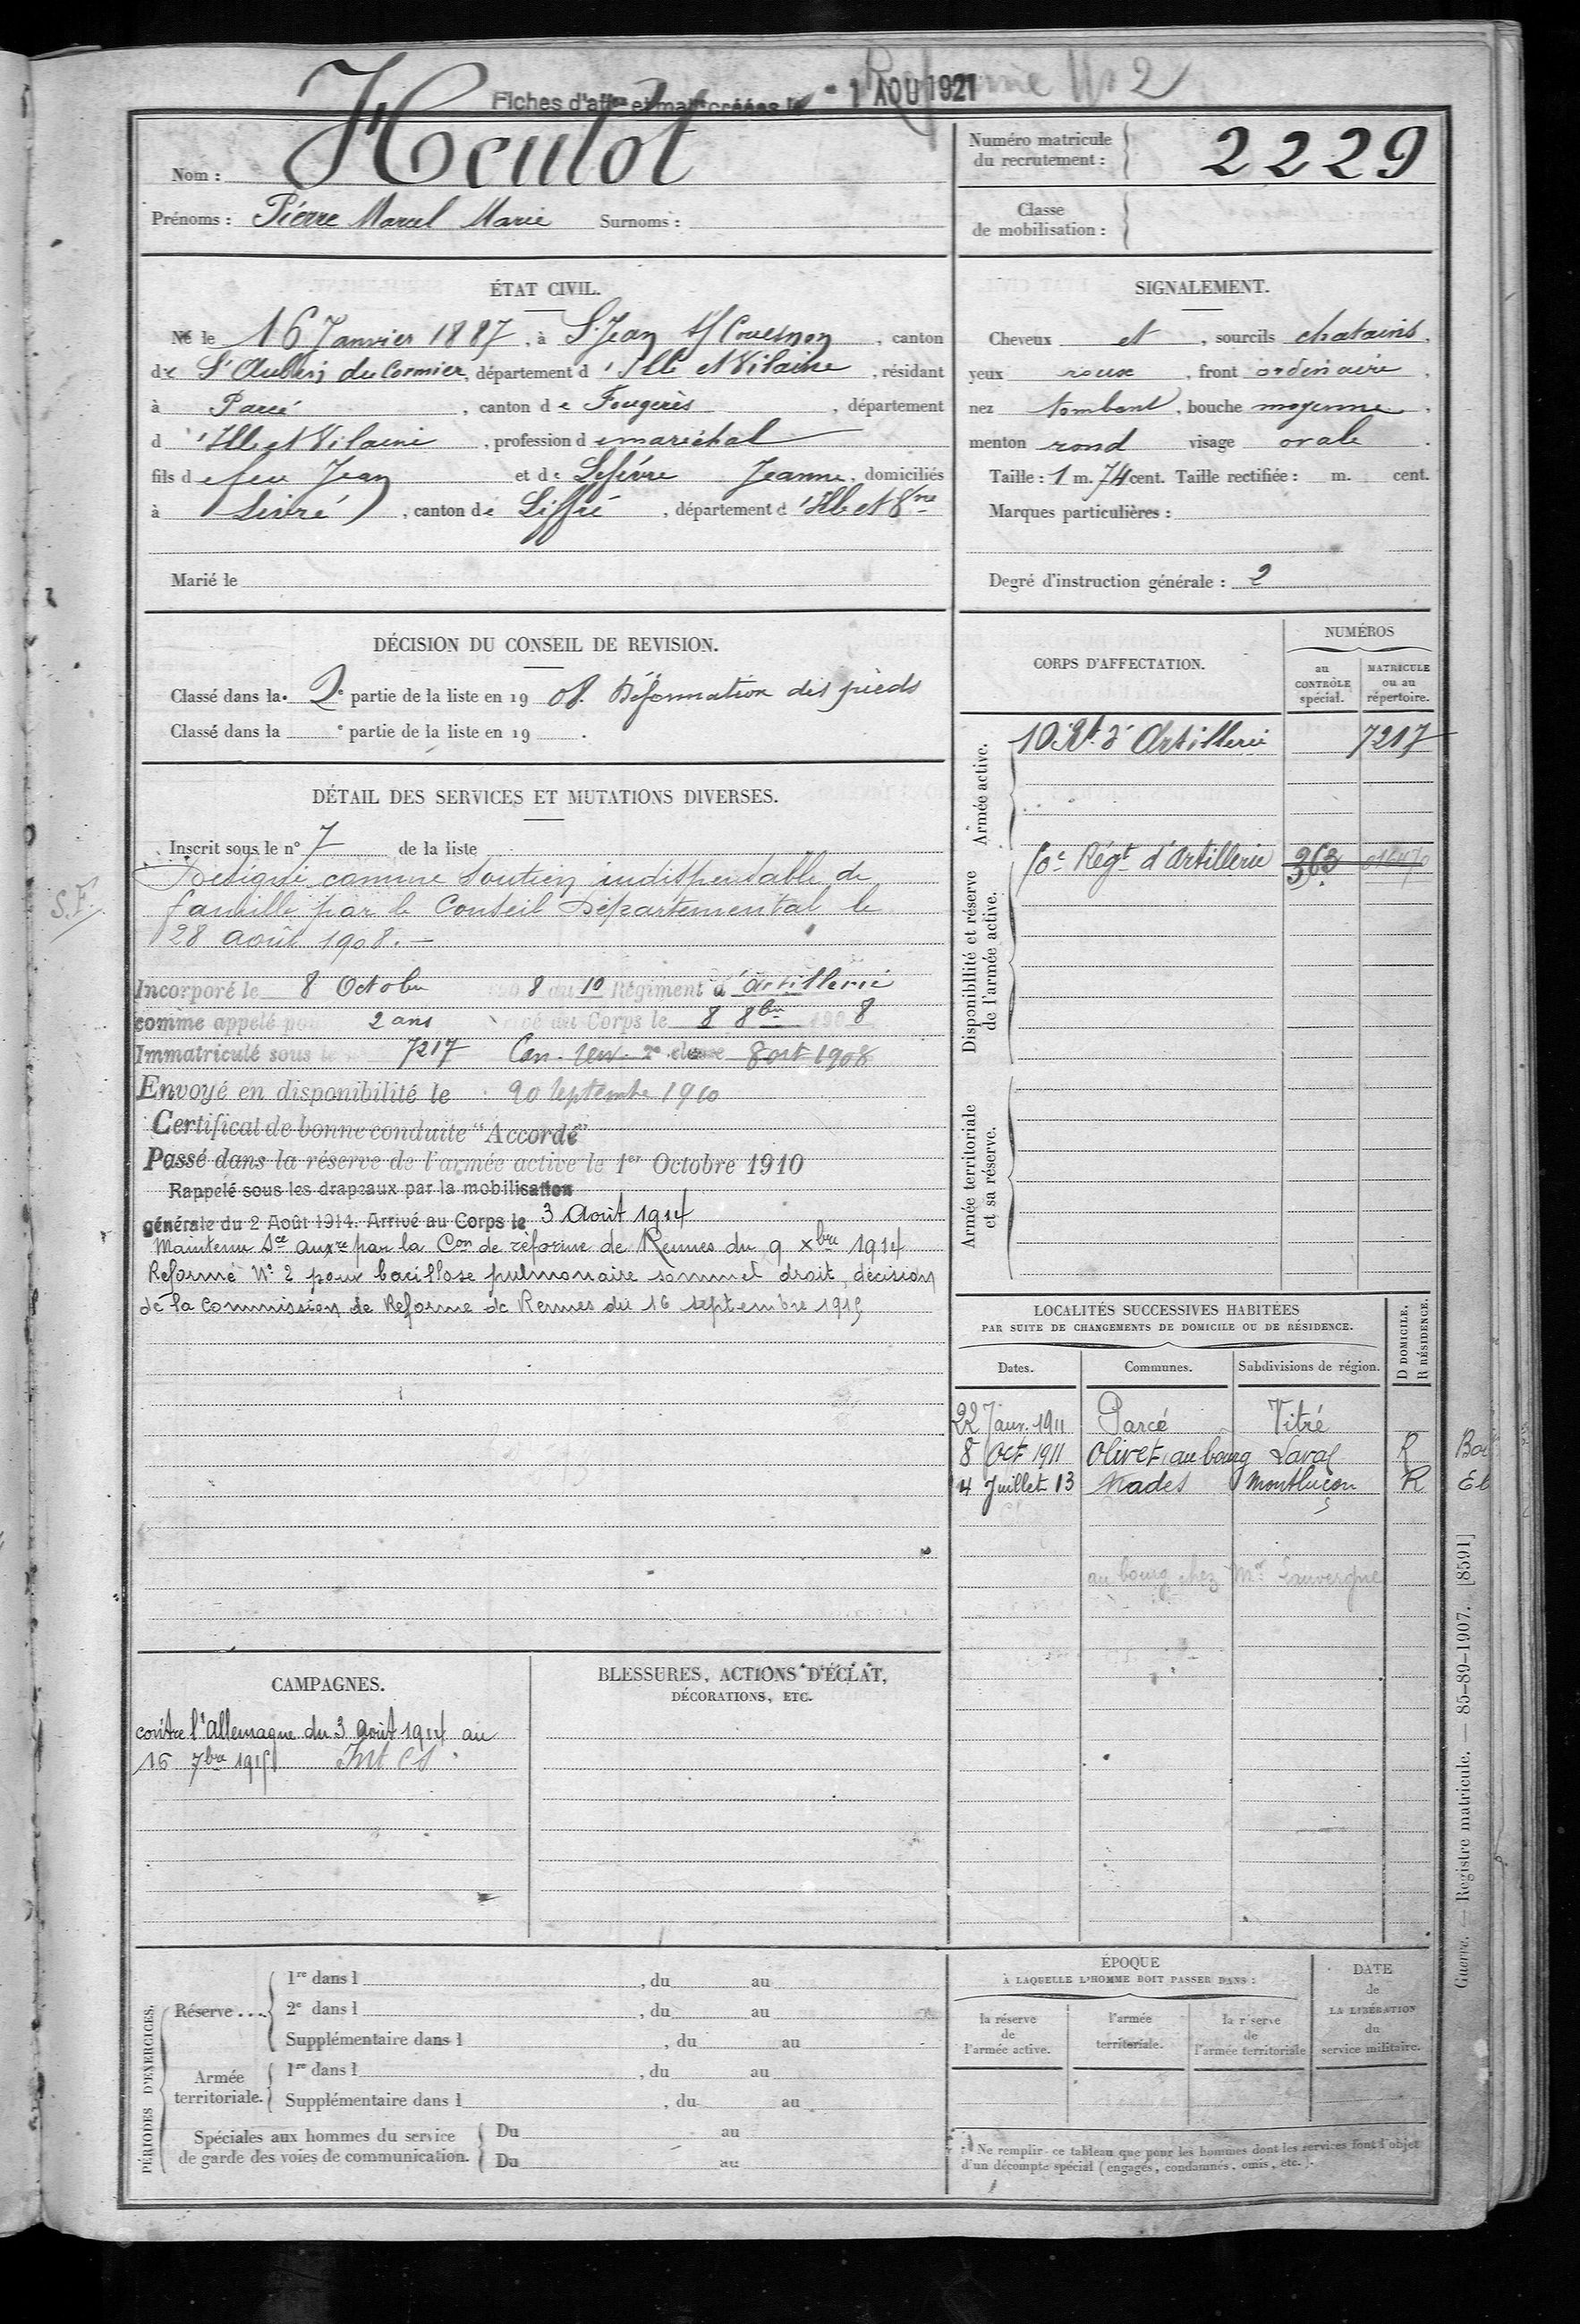 Réforme No 2
Fiches d'aff^on et mat^le créées le - 1 AOU 1921
Nom : Heulot
Prénoms : Pierre Marcel Marie Surnoms :
Numéro matricule du recrutement : 2229
Classe de mobilisation :
ÉTAT CIVIL.
Né le 16 Janvier 1887, à St Jean s/ Couesnon, canton
de St Aubin du Cormier, département d'Ille et Vilaine, résidant
à Parcé, canton de Fougères, département
d'Ille et Vilaine, profession de maréchal
fils de feu Jean et de Lefèvre Jeanne, domiciliés
à Livré, canton de Liffré, département d'Ille et V^ne
Marié le
SIGNALEMENT.
Cheveux et, sourcils chatains,
yeux roux, front ordinaire,
nez tombant, bouche moyenne,
menton rond visage ovale.
Taille : 1 m. 74 cent. Taille rectifiée : m. cent.
Marques particulières :
Degré d'instruction générale : 2
DÉCISION DU CONSEIL DE REVISION.
Classé dans la 2e partie de la liste en 1908. Déformation des pieds
Classé dans la e partie de la liste en 19 .
DÉTAIL DES SERVICES ET MUTATIONS DIVERSES.
Inscrit sous le n° 7 de la liste
Désigné comme soutien indispensable de
famille par le Conseil Départemental le
28 août 1908. —
S.F.
Incorporé le 8 Octobre 1908 au 10 Régiment d'Artillerie
comme appelé pour 2 ans Arrivé au Corps le 8 8bre 1908
Immatriculé sous le n° 7217 Can. 2e classe 8 oct 1908
Envoyé en disponibilité le 20 septembre 1910
Certificat de bonne conduite "Accordé"
Passé dans la réserve de l'armée active le 1er Octobre 1910
Rappelé sous les drapeaux par la mobilisation
générale du 2 Août 1914. Arrivé au Corps le 3 Août 1914
Maintenu s^ce aux^re par la C^on de réforme de Rennes du 9 xbre 1914
Réformé N° 2 pour bacillose pulmonaire sommet droit, décision
de la Commission de Réforme de Rennes du 16 septembre 1915
CORPS D'AFFECTATION.
NUMÉROS
au CONTRÔLE spécial.
MATRICULE ou au répertoire.
Armée active.
10 R^t d'Artillerie 7217
Disponibilité et réserve de l'armée active.
10e Rég^t d'Artillerie 363
Armée territoriale et sa réserve.
LOCALITÉS SUCCESSIVES HABITÉES
PAR SUITE DE CHANGEMENTS DE DOMICILE OU DE RÉSIDENCE.
D DOMICILE.
R RÉSIDENCE.
Dates. Communes. Subdivisions de région.
22 Janv. 1911 Parcé Vitré
8 Oct 1911 Olivet, au bourg Laval R
4 Juillet 13 Nades Montluçon R
au bourg chez Mr Lauvergne
CAMPAGNES.
contre l'Allemagne du 3 Août 1914 au
16 7bre 1915 Int CS
BLESSURES, ACTIONS D'ÉCLAT,
DÉCORATIONS, ETC.
PÉRIODES D'EXERCICES.
Réserve ....
1re dans l , du au
2e dans l , du au
Supplémentaire dans l , du au
Armée territoriale.
1re dans l , du au
Supplémentaire dans l , du au
Spéciales aux hommes du service
de garde des voies de communication.
Du au
Du au
ÉPOQUE
À LAQUELLE L'HOMME DOIT PASSER DANS :
la réserve de l'armée active.
l'armée territoriale.
la réserve de l'armée territoriale
DATE de LA LIBÉRATION du service militaire.
Ne remplir ce tableau que pour les hommes dont les services font l'objet
d'un décompte spécial (engagés, condamnés, omis, etc.).
Guerre. — Registre matricule. — 85-89-1907. [8591]